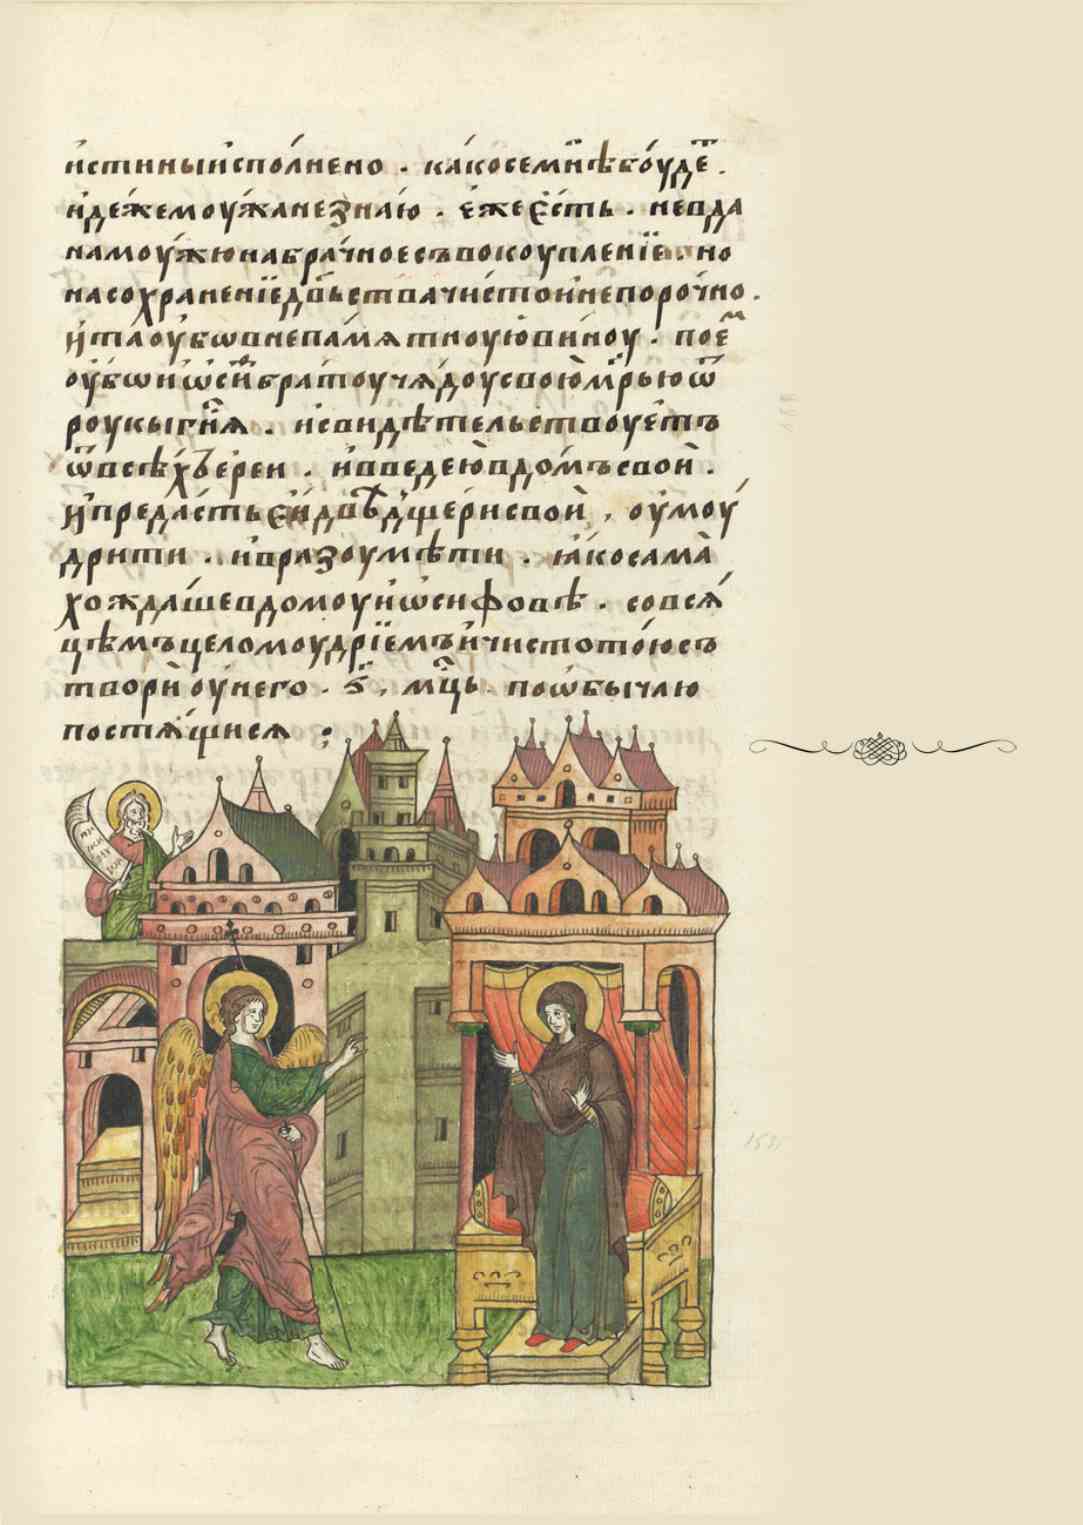 истинныисполнено . какосемнѣбоуде̅ .
идежемоужанезнаю . ежеесть . невда
намоужюнабрачноесъвокоупленїе . но
насохраненїедв҃ьствачистоинепорочно .
итаоубѡвнепамятноуювиноу . поем
оубѡиѡсифбратоучядоусвоюмр҃ьюѿ
роукыгн҃я . исвидѣтельствоуетъ
ѿвсѣхъереи . ивведеювдомъсвои .
ипредастьеидвѣдщерисвои , оумоу
дрити . ивразоумѣти . якосама
хождашевдомоуиѡсифовѣ . совся
цѣмъцеломоудрїемъичистотоюсъ
твориоунего . ѕ҃ . мц҃ь поѡбычаю
постящися :